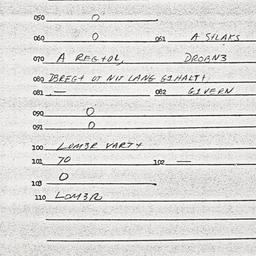 050 0
060 0 061 A StLAKS
070 A REGtOL, DROBN3
080 DBREGt Ot NIt LANG GIHALTt
081 — 082 GIVERN
090 0
091 0
100 LOM3R VARTt
101 70 102 —
103 0
110 LOM3R